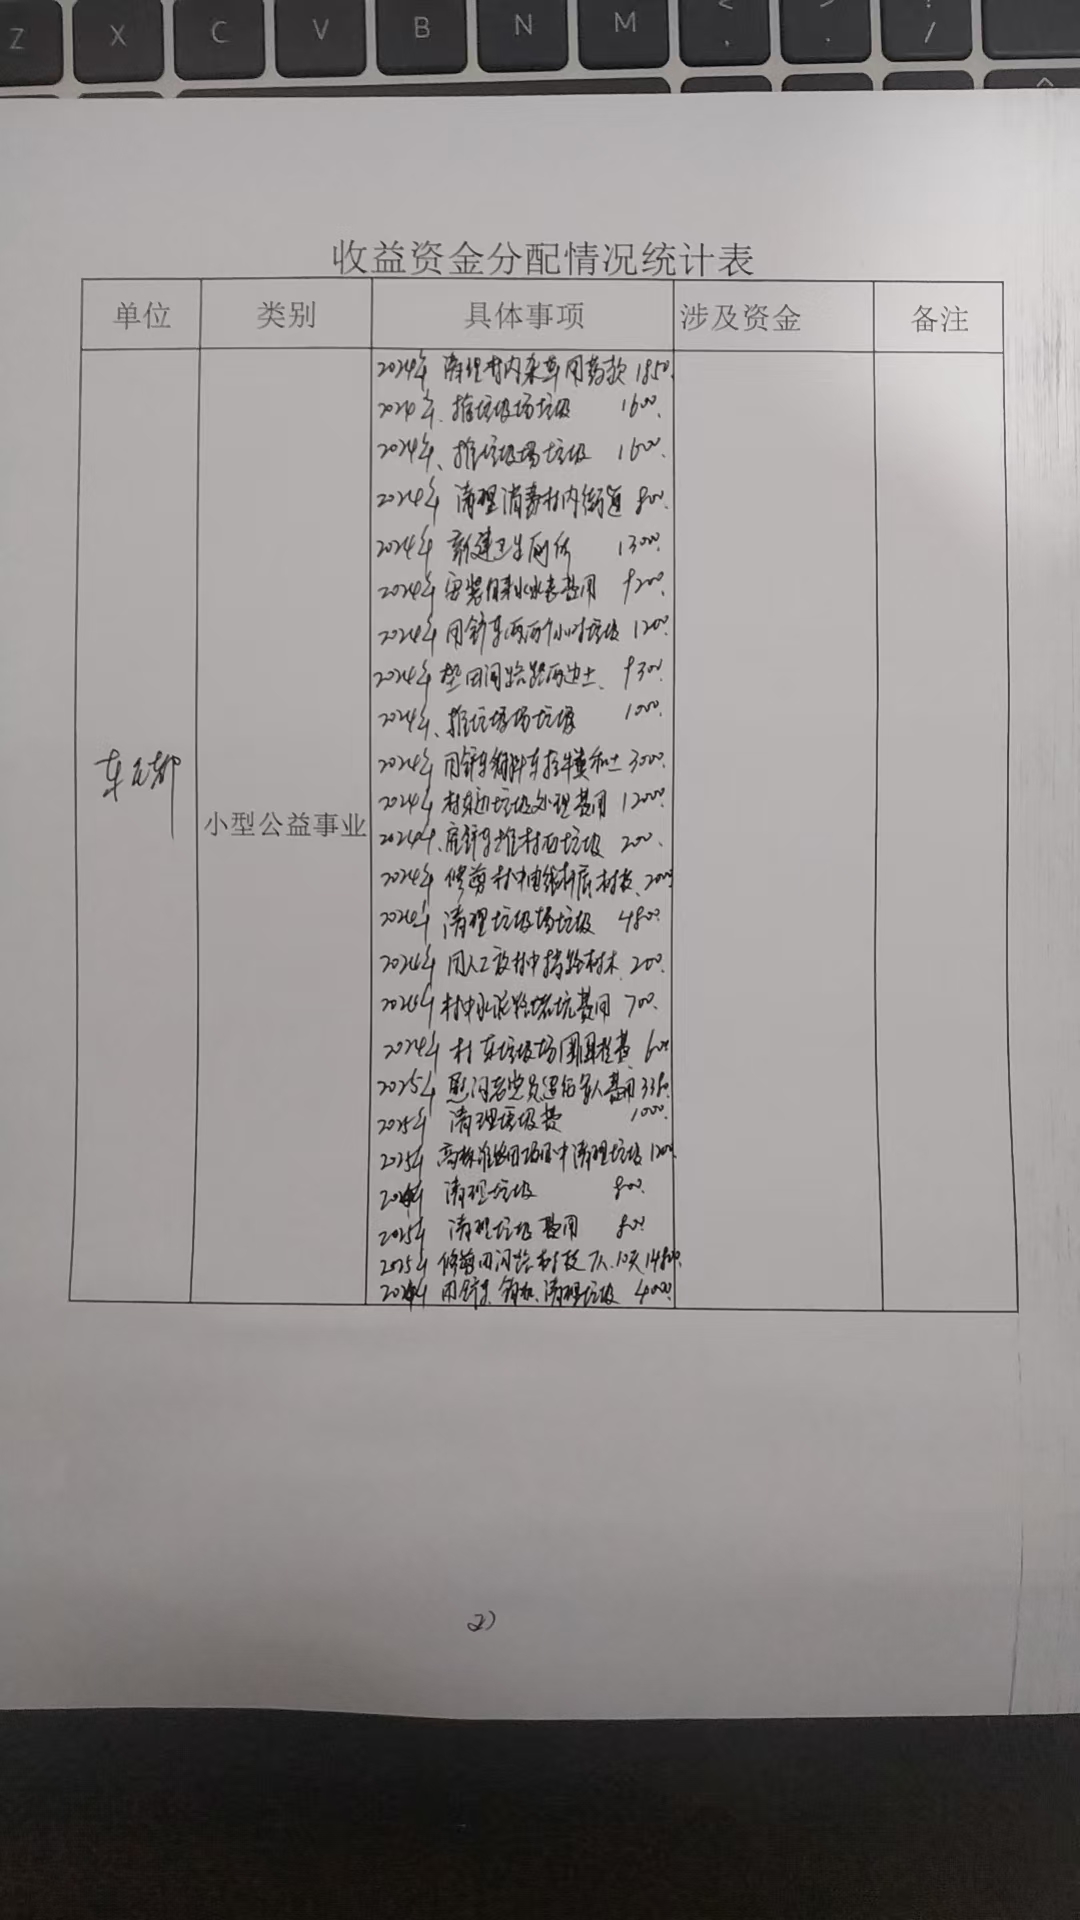 Z X C V B N M < , > . ? /
收益资金分配情况统计表
单位 类别 具体事项 涉及资金 备注
2024年 清理村内杂草用药款 1850.
2024年. 推垃圾场垃圾 1600.
2024年、推垃圾场垃圾 1600.
2024年 清理消毒村内街道 800.
2024年 新建卫生厕所 1300.
2024年 安装自来水水表费用 9200.
2024年 用铲车两个小时垃圾 1200.
2024年 垫田间路路两边土. 9300.
2024年、推垃圾场垃圾 1000.
2024年 用铲车 车拉牛粪和土 3000.
车元都
2024年 村东边垃圾处理费用 12000.
小型公益事业
2024年. 雇铲车推村西垃圾 200.
2024年 修剪村中电线 树枝. 200
2024年 清理垃圾场垃圾 4800.
2024年 用人工 村中 树木. 200.
2024年 村中水泥路 坑费用 700.
2024年 村东垃圾场围 费 600
2025年 慰问老党员 人费用 3350.
2025年 清理垃圾费 1000.
2025年 高标准 田项目中清理垃圾 1200
清理垃圾 800.
2025年 清理垃圾费用 800
2025年 修剪田间路树枝 7人.10天 14800.
用铲车. 清理垃圾 4000.
2)